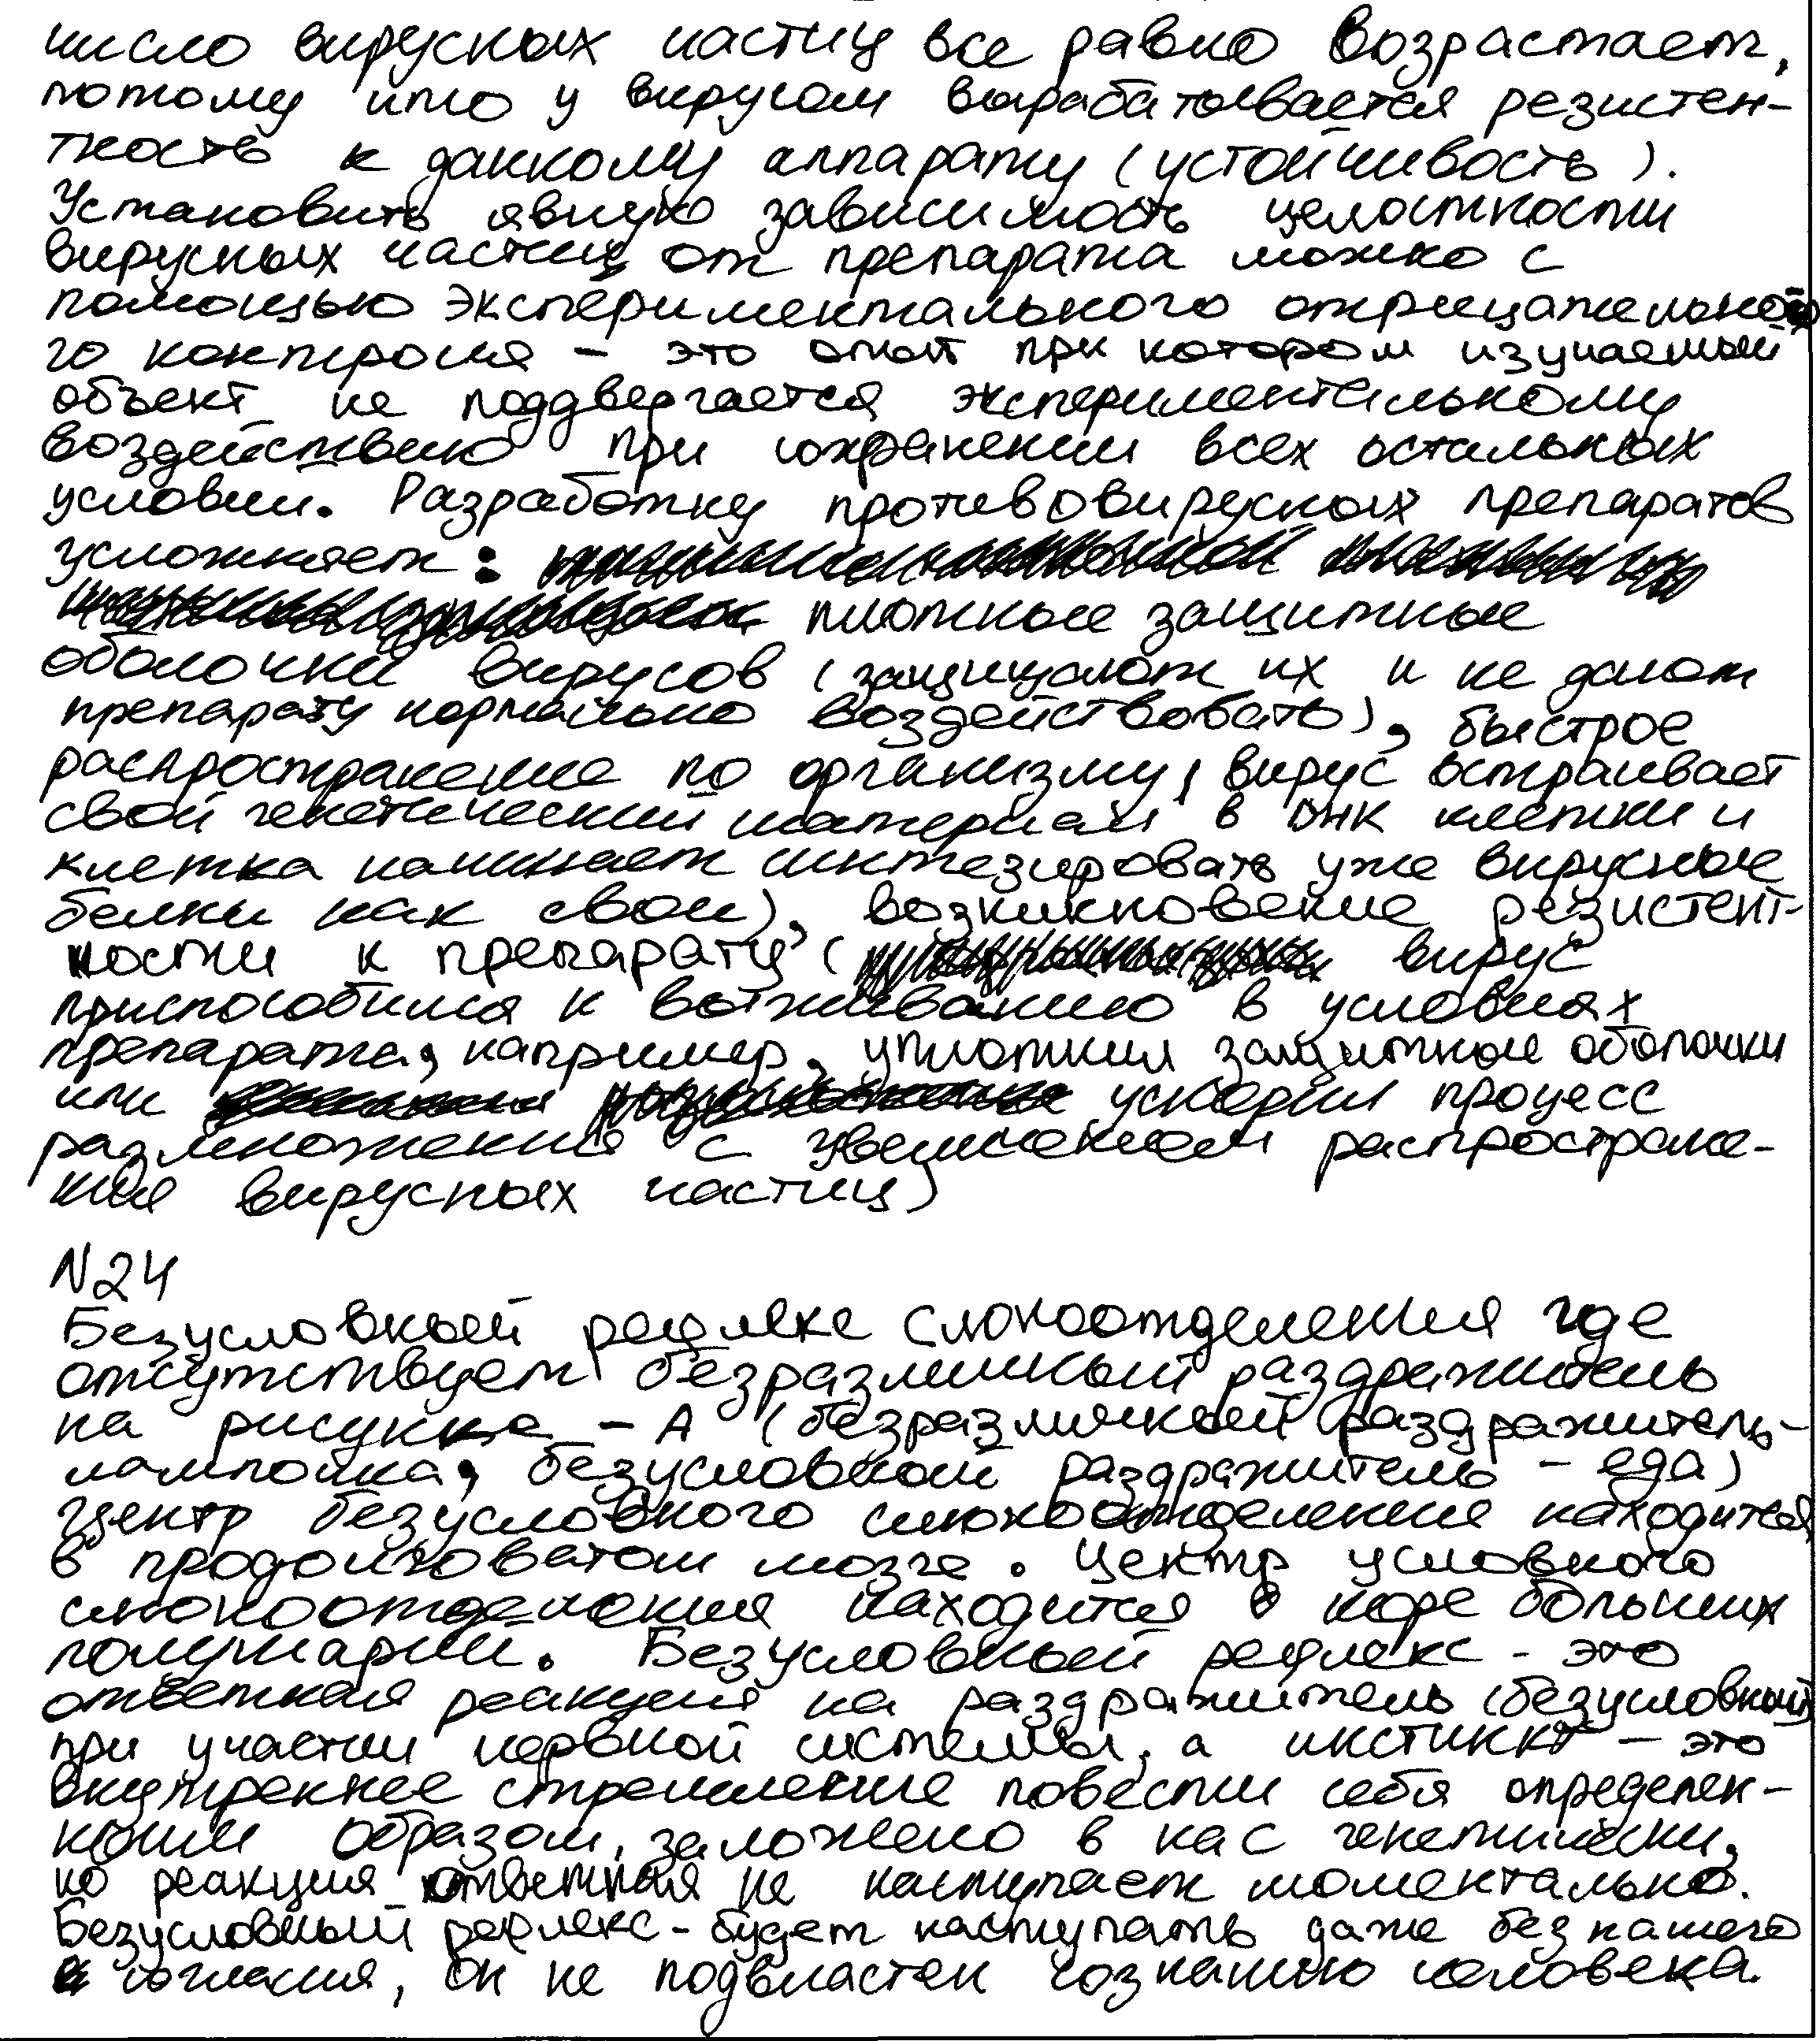 число вирусных частиц все равно возрастает,
потому что у вирусам вырабатывается резистен-
тность к данному аппарату (устойчивость).
Установить явную зависимость целостности
вирусных частиц от препарата можно с
помощью экспериментального отрицательно
го контроля - это опыт при котором изучаемый
объект не поддвергается экспериментальному
воздействию при сохранении всех остальных
условий. Разработку противовирусных препаратов
усложняет:
плотные защитные
оболочки вирусов (защищают их и не дают
препарату нормально воздействовать), быстрое
распространение по организму, вирус встраивает
свой генетический материал в ДНК клетки и
клетка начинает синтезировать уже вирусные
белки как свои), возникновение резистент-
ности к препарату (вирус
приспособился к выживанию в условиях
препарата, например, уплотнил защитные оболочки
или ускорил процесс
размножения с увеличением распростране-
ния вирусных частиц)
N24
Безусловный рефлекс слюноотделения где
отсутствует безразличный раздражитель
на рисунке - А (безразличный раздражитель-
лампочка, безусловный раздражитель - еда)
Центр безусловного слюноотделения находится
в продолговатом мозге. Центр условного
слюноотделения находится в коре больших
полушарий. Безусловный рефлекс - это
ответная реакция на раздражитель (безусловный)
при участии нервной системы, а инстинкт - это
внутреннее стремление повести себя определен-
ным образом, заложено в нас генетически,
но реакция ответная не наступает моментально.
Безусловный рефлекс - будет наступать даже без нашего
согласия, он не подвластен сознанию человека.